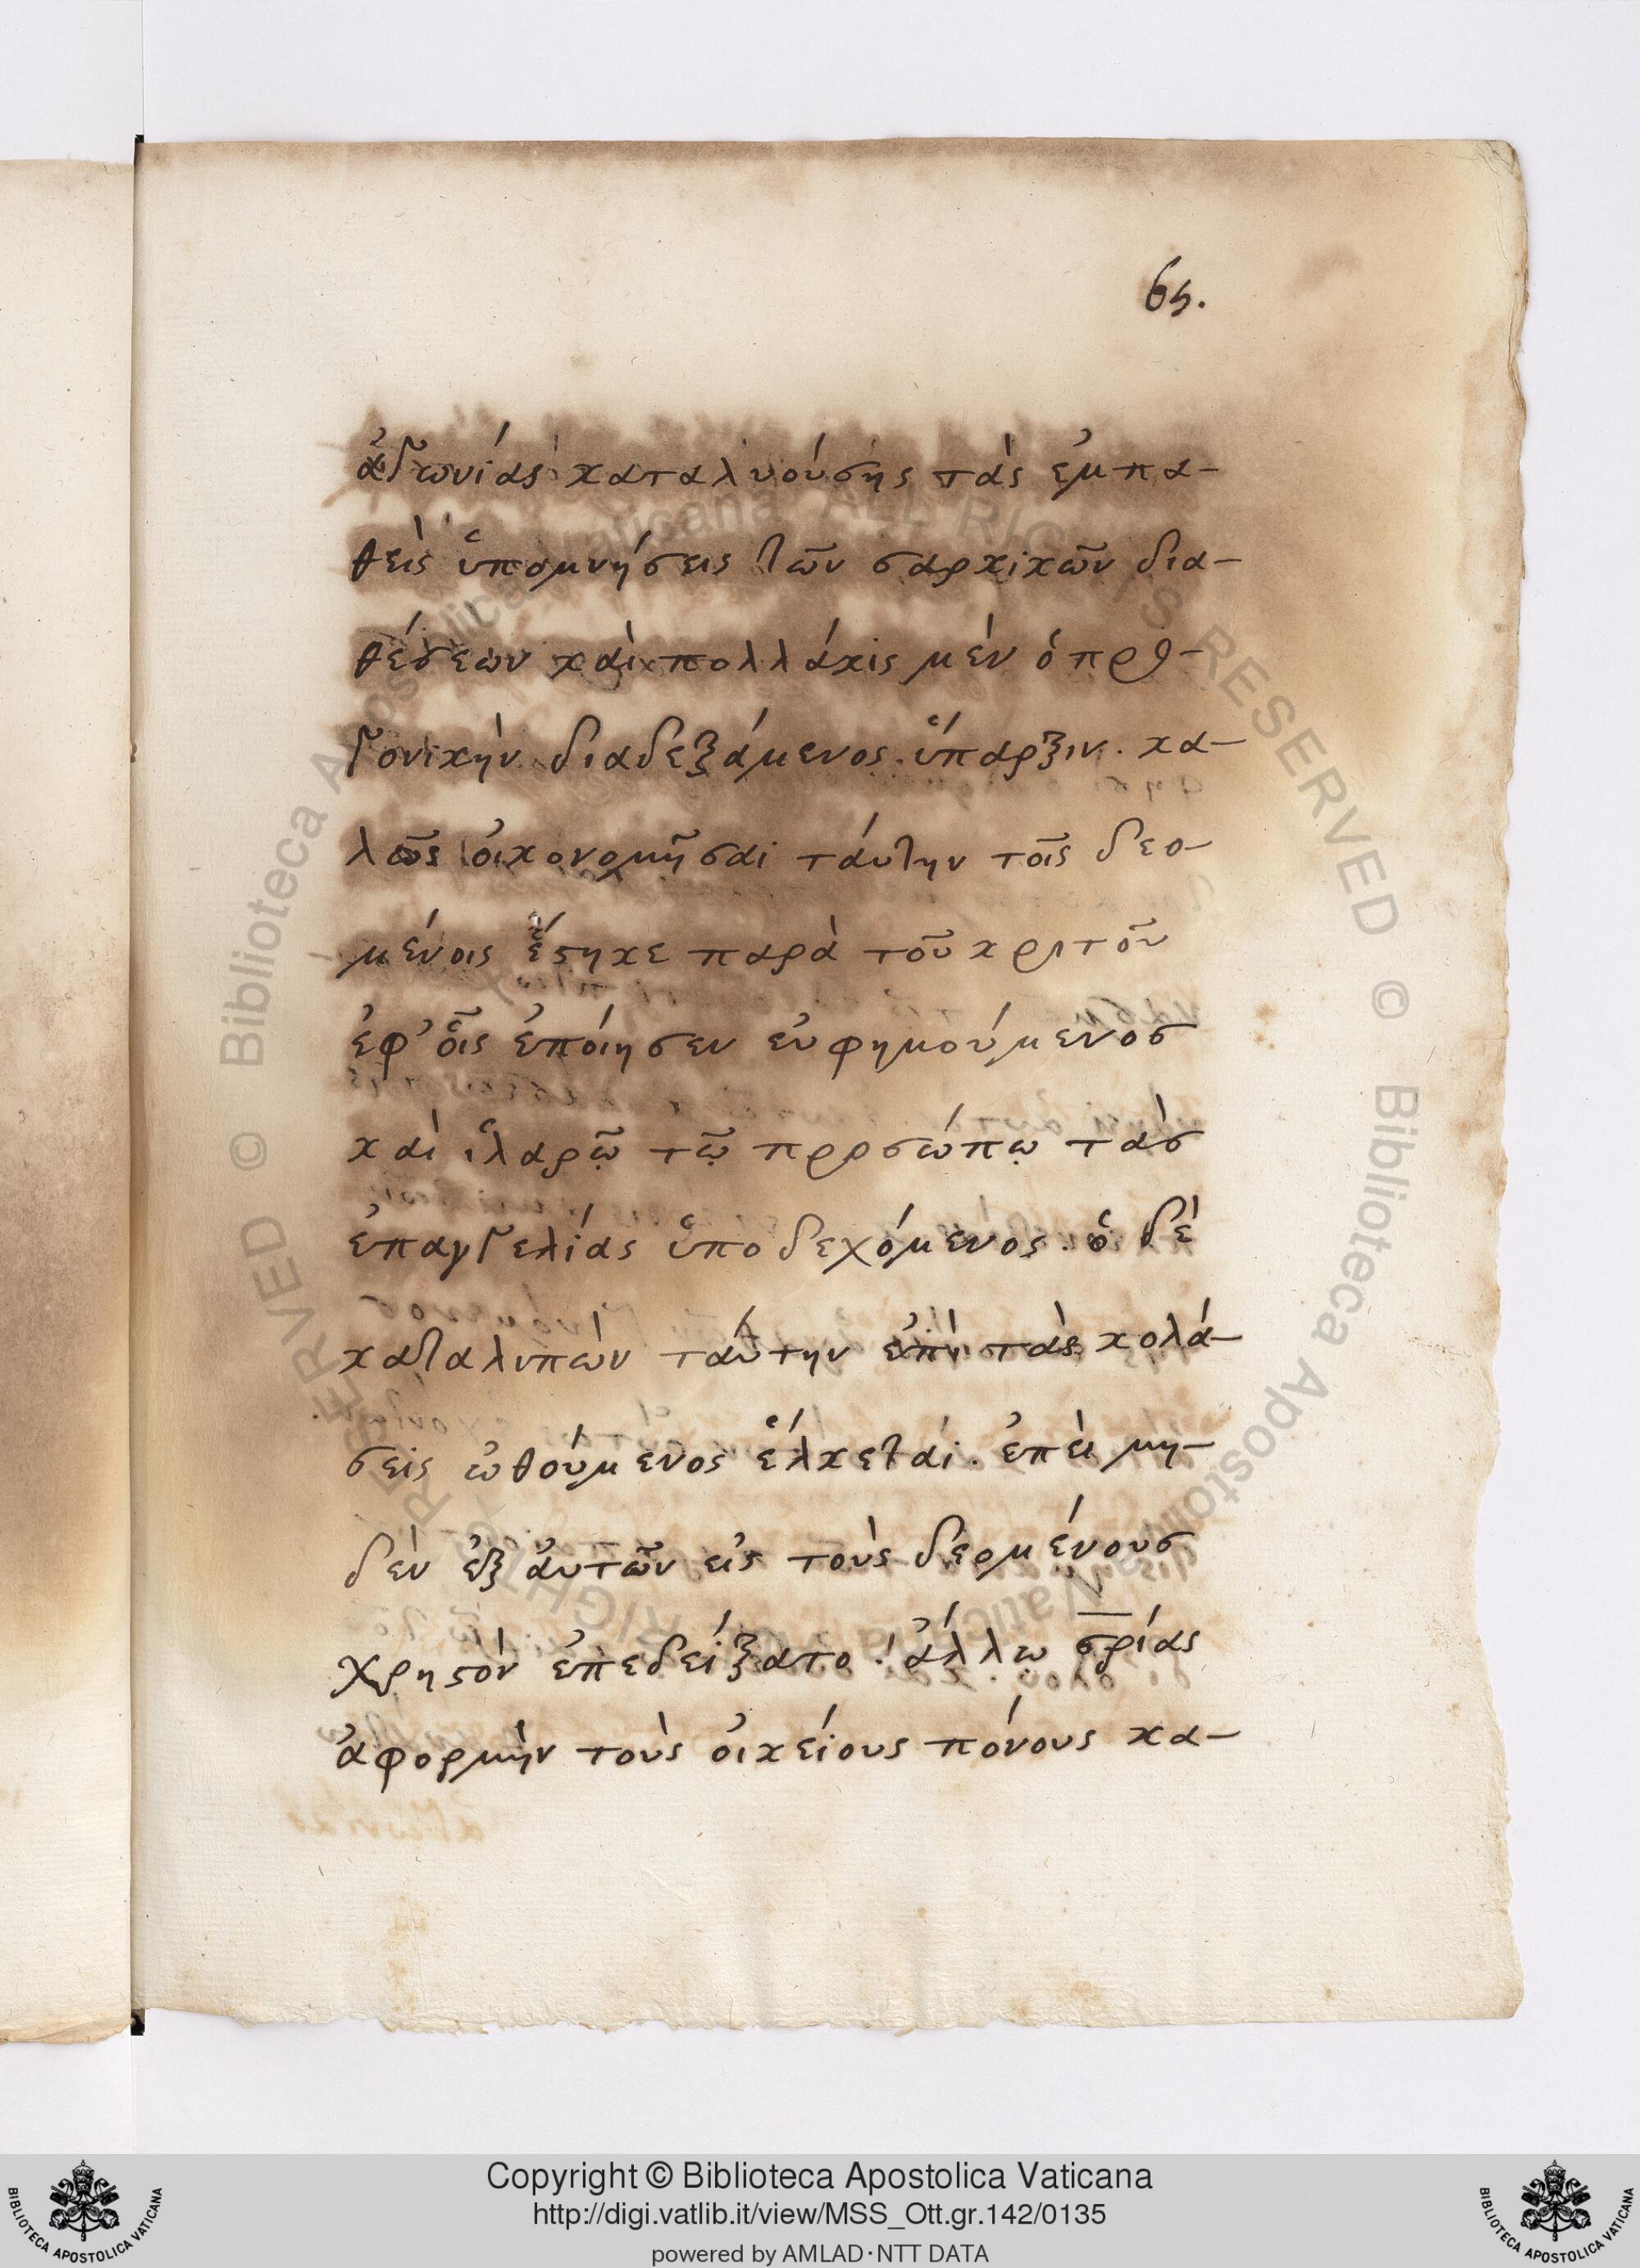 65.
ἀγωνίας καταλυούσης τὰς ἐμπα-
θεὶς ὑπομνήσεις τῶν σαρκικῶν δια-
θέσεων καὶ πολλάκις μὲν ὁ προ-
γονικὴν διαδεξάμενος. ὕπαρξιν. κα-
λῶς οἰκονομῆσαι ταύτην τοῖς δεο-
μένοις ἕστηκε παρὰ τοῦ κριτοῦ
ἐφ' οἷς ἐποίησεν εὐφημούμενος
καὶ ἱλαρῷ τῷ προσώπῳ τὰς
ἐπαγγελίας ὑποδεχόμενος. ὁ δὲ
καταλιπὼν ταύτην ἐπὶ τὰς κολά-
σεις ὠθούμενος ἕλκεται. ἐπεὶ μη-
δὲν ἐξ αὐτῶν εἰς τοὺς δεομένους
χρηστὸν ἐπεδείξατο. ἄλλῳ σρίας
ἀφορμὴν τοὺς οἰκείους πόνους κα-
Copyright © Biblioteca Apostolica Vaticana
http://digi.vatlib.it/view/MSS_Ott.gr.142/0135
powered by AMLAD·NTT DATA
BIBLIOTECA APOSTOLICA VATICANA
BIBLIOTECA APOSTOLICA VATICANA